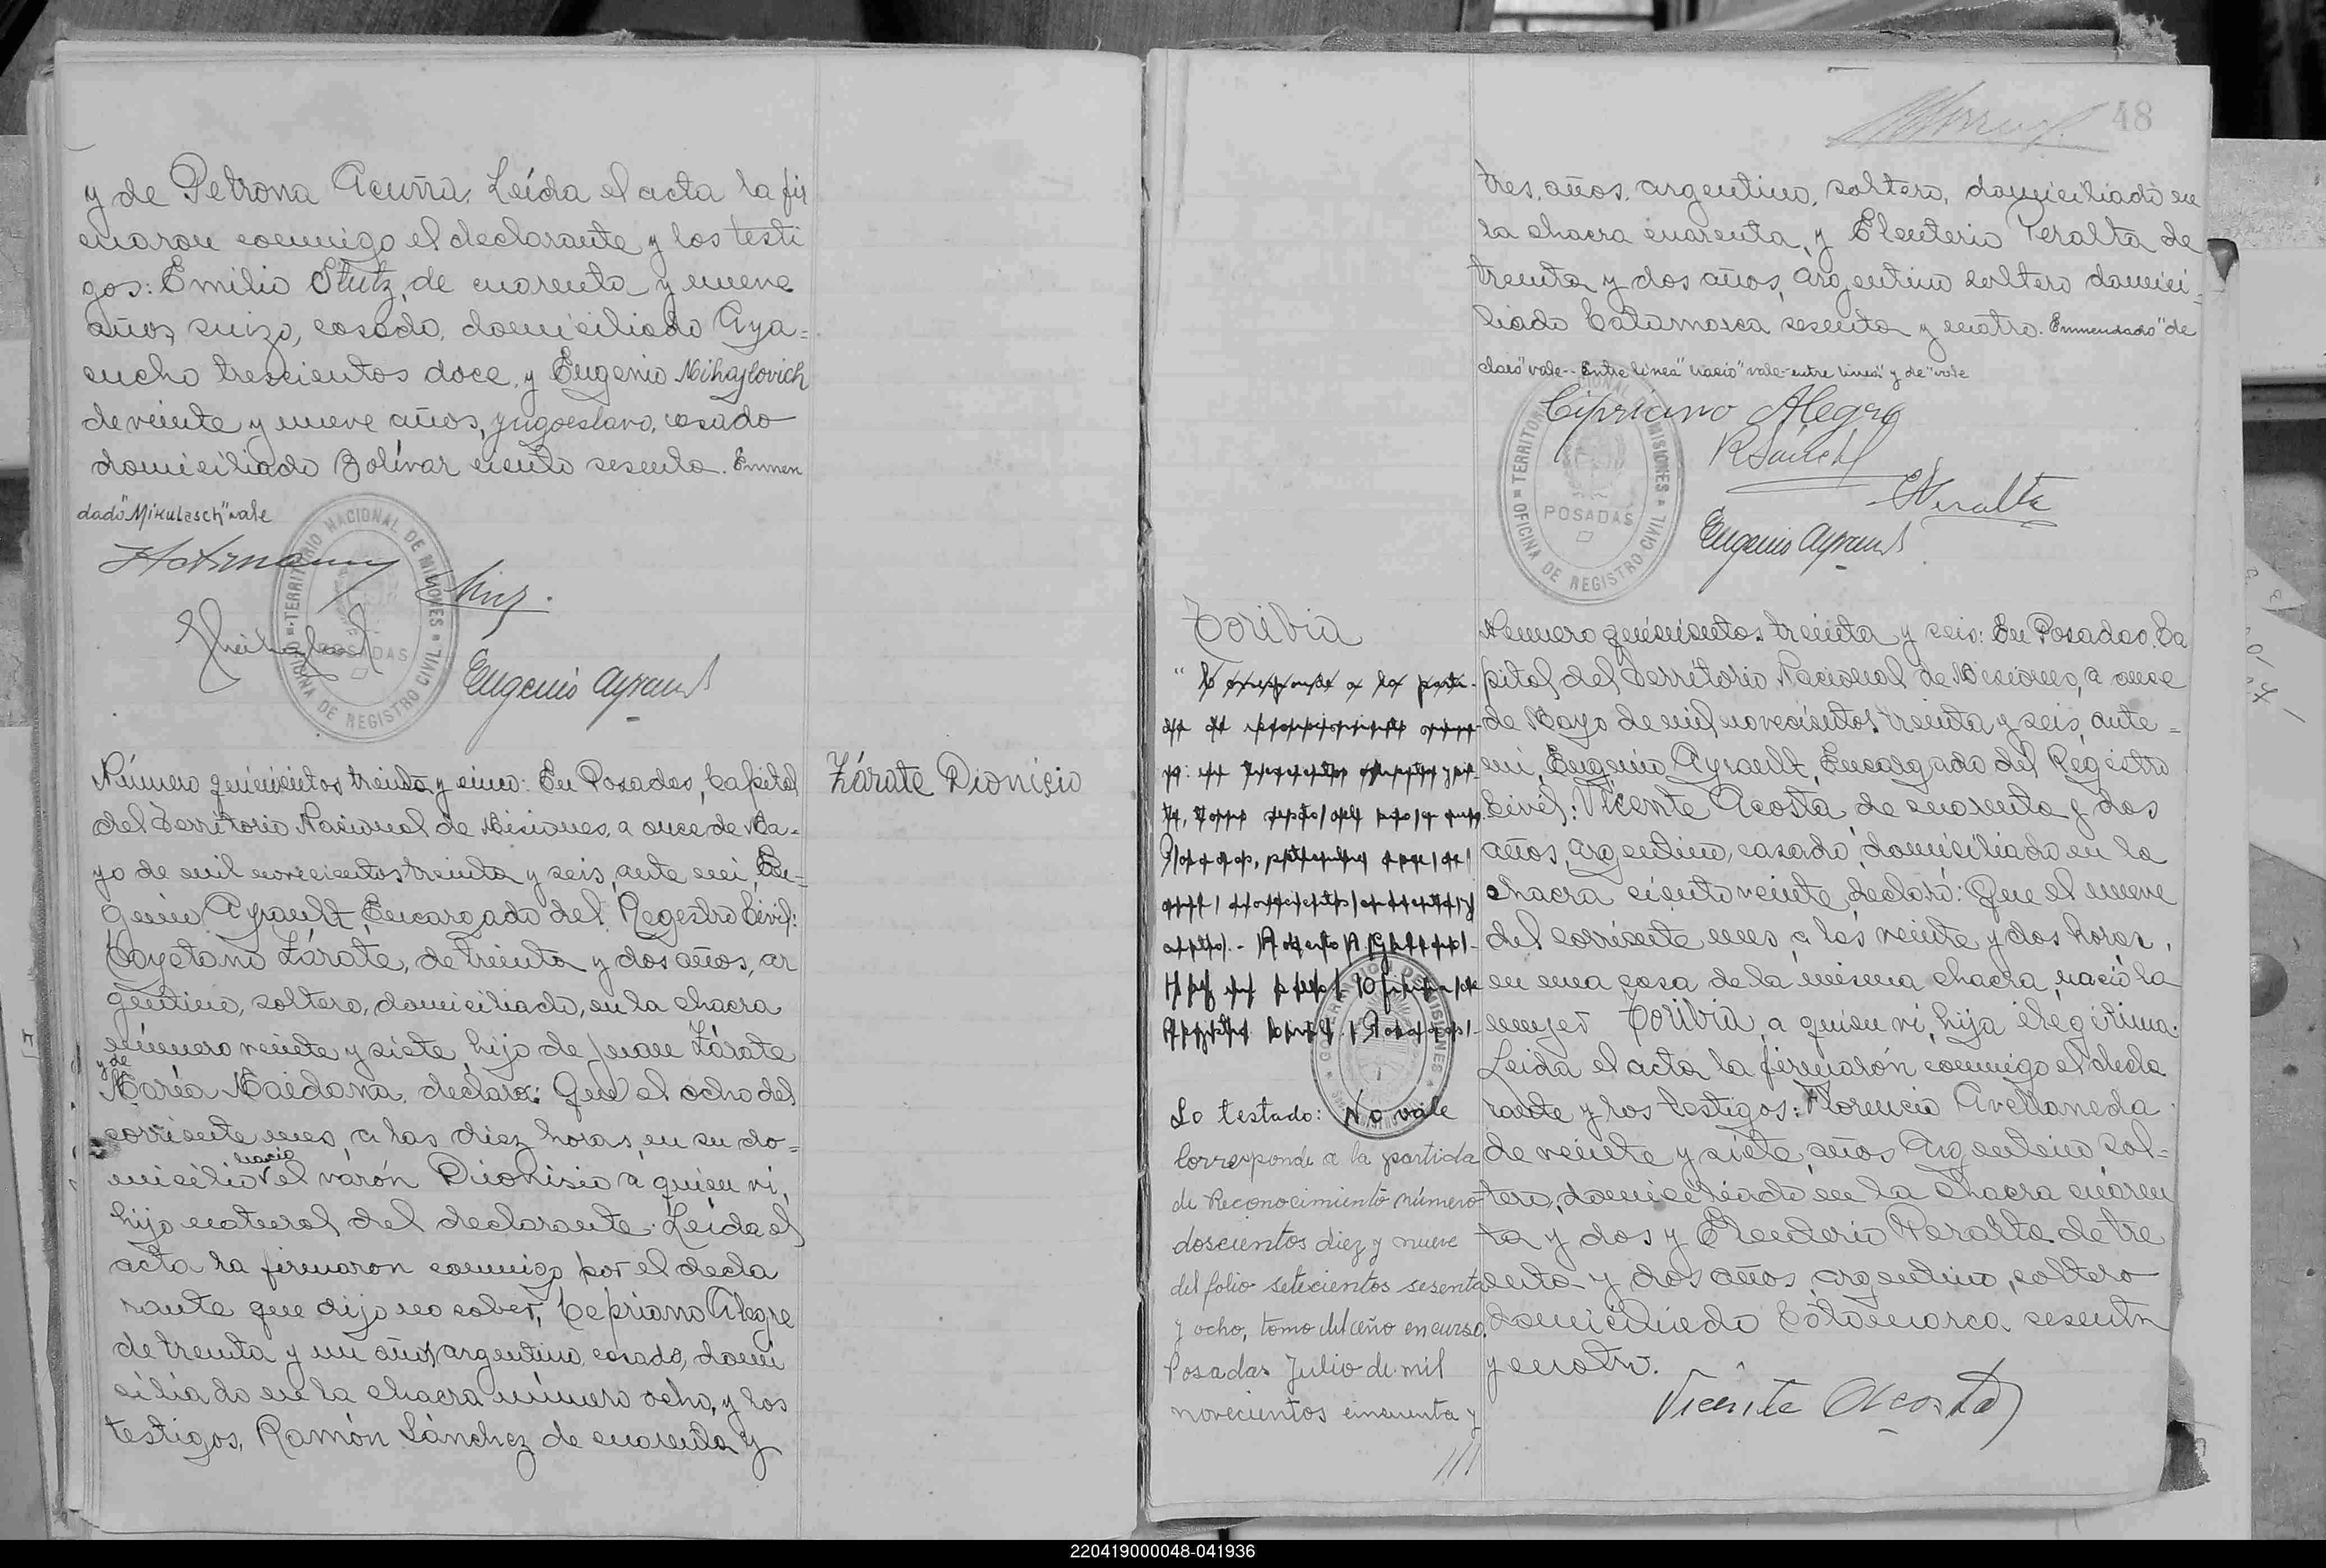 y de Petrona Acuña. Leída el acta la fir
maron conmigo el declarante y los testi
gos: Emilio Stutz, de cuarenta y nueve
años, suizo, casado, domiciliado Aya=
cucho trescientos doce, y Eugenio Mihajlovich
de veinte y nueve años, yugoeslavo, casado
domiciliado Bolívar ciento sesenta. Enmen
dado "Mikulesch" vale
TERRITORIO NACIONAL DE MISIONES
POSADAS
OFICINA DE REGISTRO CIVIL
Eugenio Ayrault
Número quinientos treinta y cinco: En Posadas, Capital
del Territorio Nacional de Misiones, a once de Ma=
yo de mil novecientos treinta y seis, ante mi, Eu=
genio Ayrault, Encargado del Registro Civil:
Cayetano Zárate, de treinta y dos años, ar
gentino, soltero, domiciliado, en la chacra
número veinte y siete, hijo de Juan Zárate
y de
María Maidana, declaró: Que el ocho del
corriente mes, a las diez horas, en su do=
nació
micilio el varón Dionisio a quien vi,
hijo natural del declarante. Leída el
acta la firmaron conmigo por el decla
rante que dijo no saber, Cipriano Alegre
de treinta y un años, argentino, casado, domi
ciliado en la chacra número ocho, y los
testigos, Ramón Sánchez de cuarenta y
Zárate Dionicio
48
tres, años, argentino, soltero, domiciliado en
la chacra cuarenta, y Eleuterio Peralta de
treinta y dos años, argentino soltero domici=
liado Catamarca sesenta y cuatro. Enmendado "de
claró" vale-- Entre línea "nació" vale-entre línea "y de" vale
Cipriano Alegre
RSánchez
EPeralta
TERRITORIO NACIONAL DE MISIONES
POSADAS
OFICINA DE REGISTRO CIVIL
Eugenio Ayrault
Toribia
Corresponde a la parti-
da de reconocimiento núme-
Registro Civil. Posadas
GOBERNACION DE MISIONES
Lo testado: No vale
Corresponde a la partida
de Reconocimiento número
doscientos diez y nueve
del folio setecientos sesenta
y ocho, tomo del año en curso.
Posadas Julio de mil
novecientos cincuenta y
///
Numero quinientos treinta y seis: En Posadas, Ca
pital del Territorio Nacional de Misiones, a once
de Mayo de mil novecientos treinta y seis, ante=
mi, Eugenio Ayrault, Encargado del Registro
Civil: Vicente Acosta de cuarenta y dos
años, argentino, casado, domiciliado en la
chacra ciento veinte, declaró: Que el nueve
del corriente mes a las veinte y dos horas,
en una casa de la misma chacra, nació la
mujer Toribia, a quien vi, hija ilegitima.
Leída el acta la firmarón conmigo el decla
rante y los testigos: Florencio Avellaneda
de veinte y siete, años argentino sol=
tero, domiciliado en la chacra cuaren
ta y dos y Eleuterio Peralta de tre
inta y dos años, argentino, soltero
domiciliado Catamarca sesenta
y cuatro.
Vicente Acosta
220419000048-041936